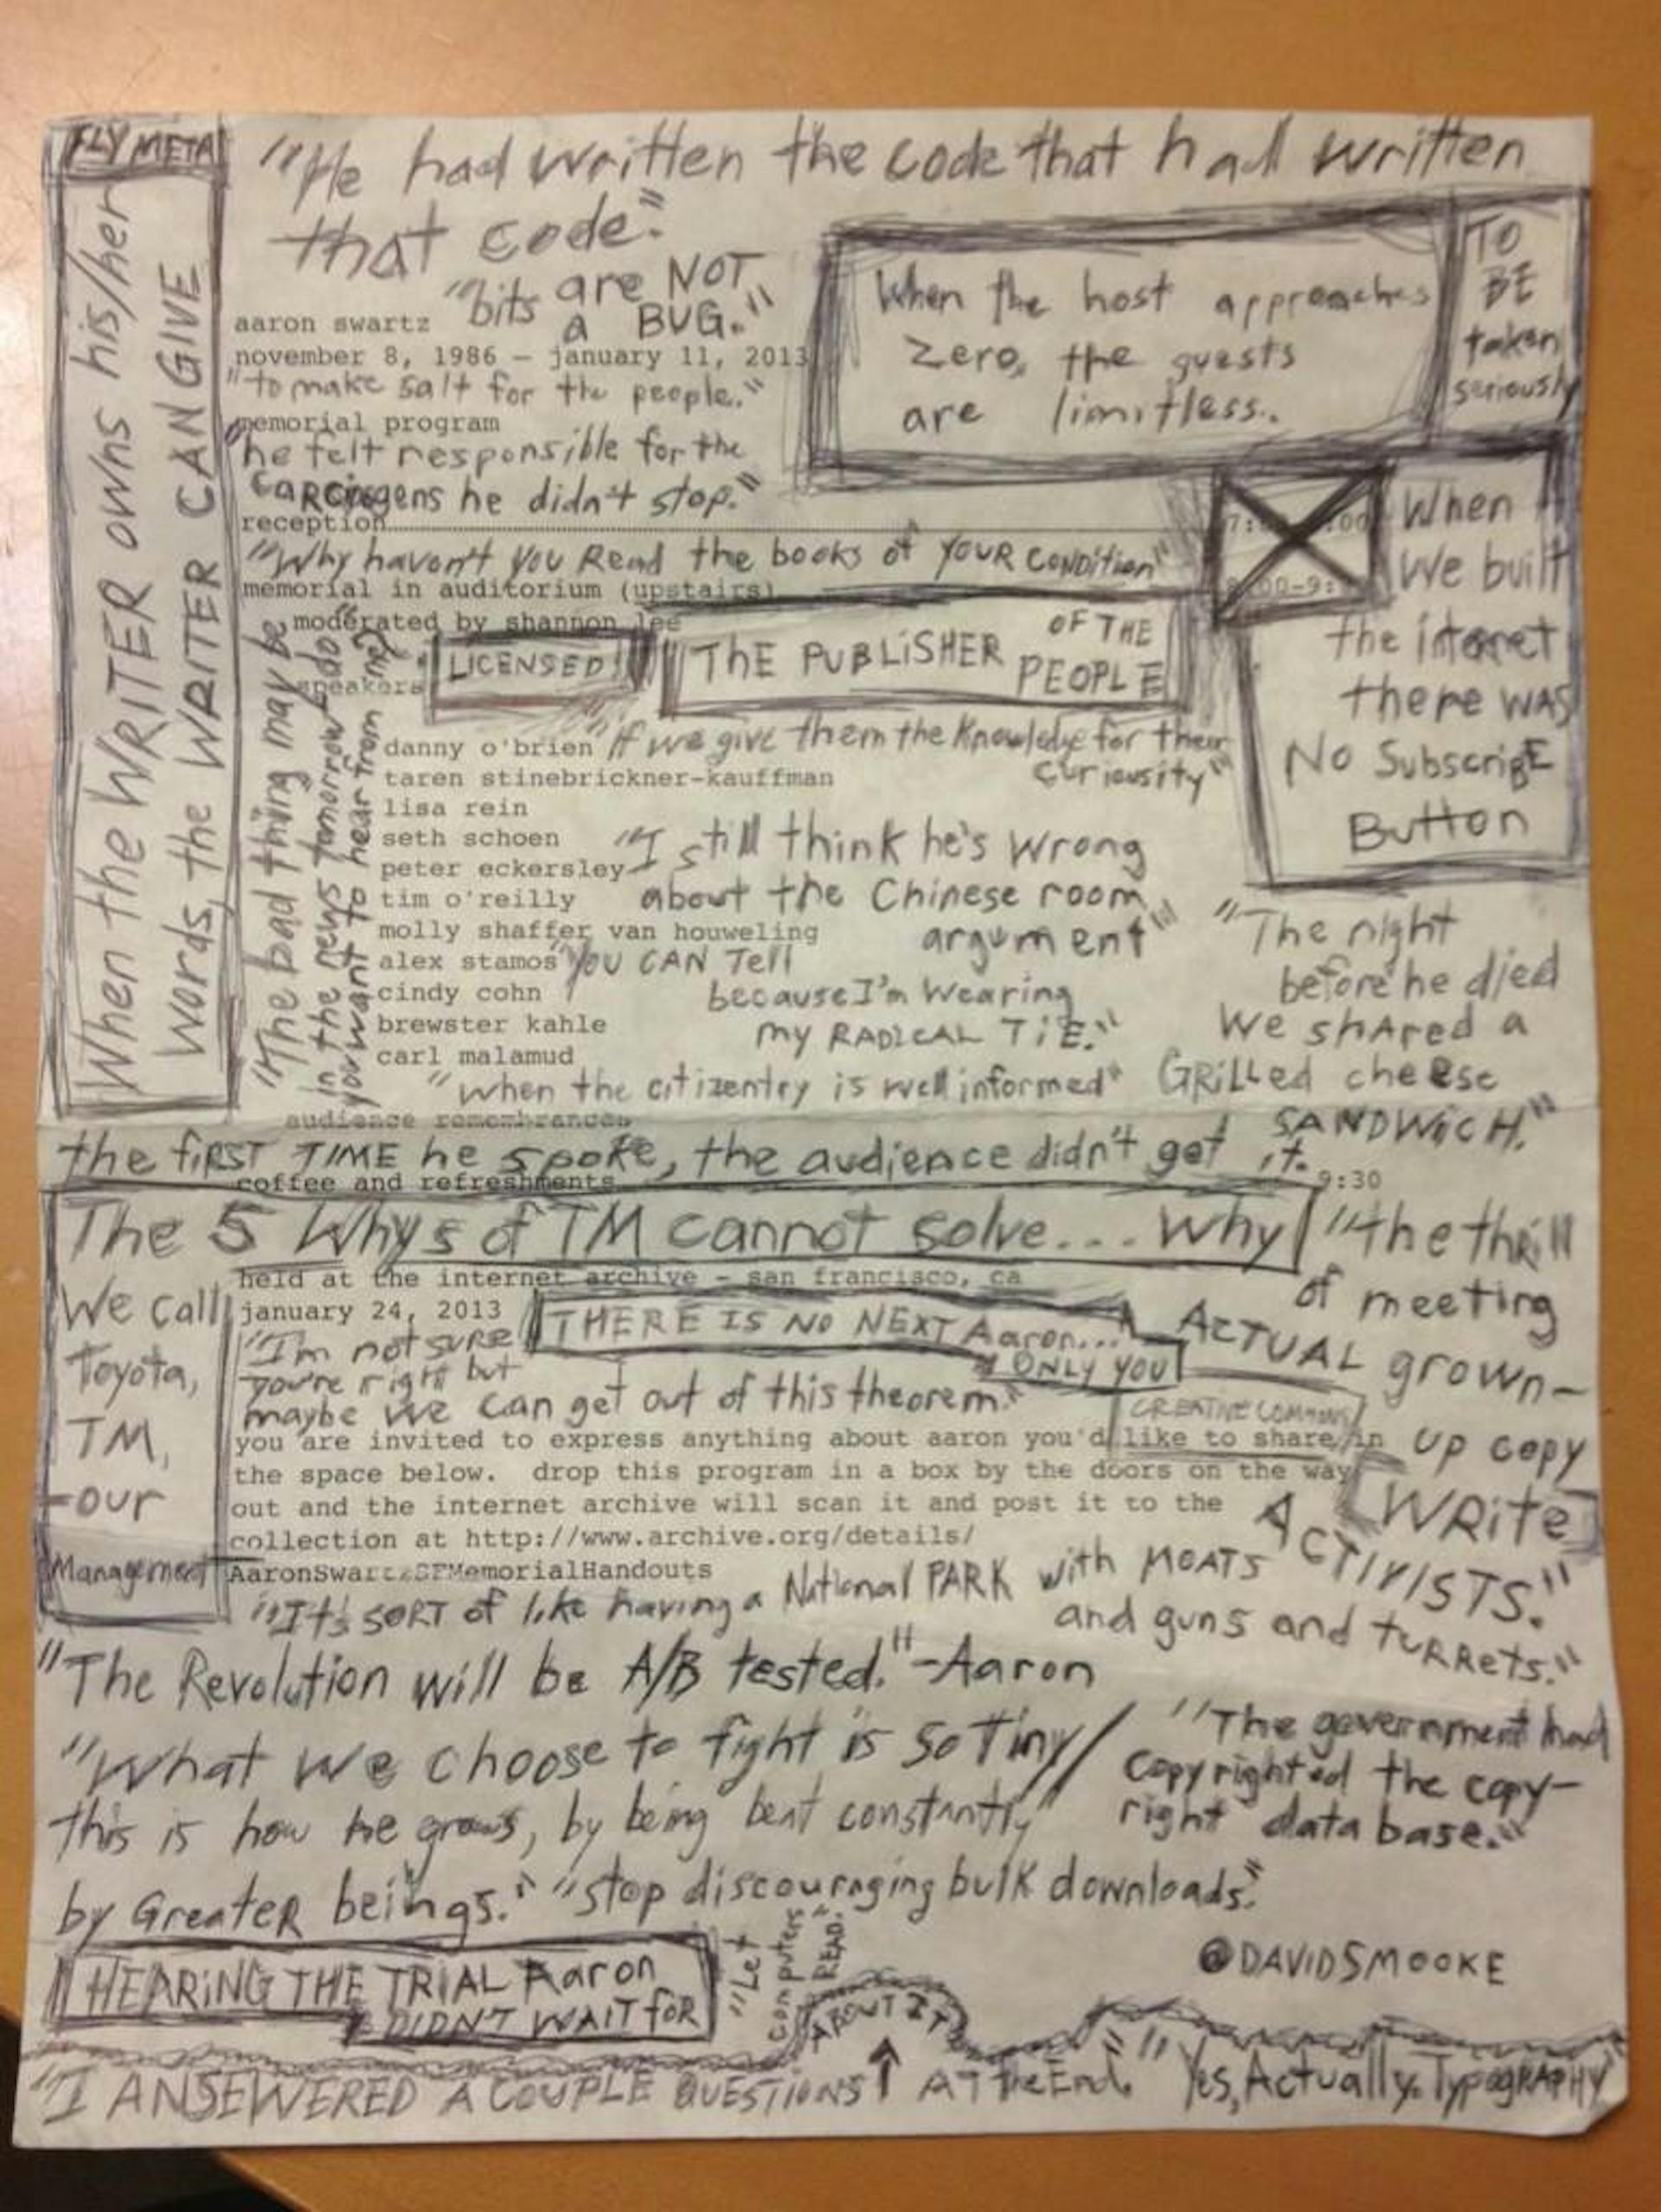 FLY META
When the WRITER owns his/her
words, the WRITER CAN GIVE
"He had written the code that had written
that code."
"bits are NOT
a BUG."
aaron swartz
november 8, 1986 – january 11, 2013
"to make salt for the people."
memorial program
"he felt responsible for the
carcinogens he didn't stop."
When the host approaches
Zero, the guests
are limitless.
TO
BE
taken
seriously
reception
"Why haven't you Read the books of YOUR CONDITION"
memorial in auditorium (upstairs)
When
We built
the internet
there WAS
No SubscribE
Button
moderated by shannon lee
LICENSED
THE PUBLISHER OF THE
PEOPLE
speakers
"The bad thing may be
in the news tomorrow do
you want to hear from me?
danny o'brien
"if we give them the Knowledge for their
curiousity"
taren stinebrickner-kauffman
lisa rein
seth schoen
peter eckersley
tim o'reilly
molly shaffer van houweling
alex stamos
cindy cohn
brewster kahle
carl malamud
"I still think he's wrong
about the Chinese room
argument"
"YOU CAN Tell
because I'm Wearing
my RADICAL TIE."
"The night
before he died
We shared a
GRILLed cheese
SANDWICH."
"when the citizentry is well informed"
audience remembrances
the fiRST TIME he spoke, the audience didn't get it.
coffee and refreshments
9:30
The 5 Whys of TM cannot solve... Why
We call
Toyota,
TM,
-our
Management
held at the internet archive – san francisco, ca
january 24, 2013
THERE IS NO NEXT Aaron...
ONLY YOU
"I'm not SURE
you're right but
maybe we can get out of this theorem."
"the thrill
of meeting
ACTUAL grown-
up copy
WRite
ACTIVISTS."
CREATIVE COMMONS
you are invited to express anything about aaron you'd like to share in
the space below. drop this program in a box by the doors on the way
out and the internet archive will scan it and post it to the
collection at http://www.archive.org/details/
AaronSwartzSFMemorialHandouts
"It's SORT of like having a National PARK with MOATS
and guns and tuRRets."
"The Revolution will be A/B tested."-Aaron
"What we choose to fight is so tiny/
this is how he grows, by being beat constantly
by GreateR beings."
"The government had
copyrighted the copy-
right database."
"stop discouraging bulk downloads."
HEARING THE TRIAL Aaron
DIDN'T WAIT foR
"Let
computers
READ."
@DAVIDSMOOKE
ABOUT IT
"I ANSEWERED A COUPLE QUESTIONS ↑ AT the End."
"Yes, Actually. TypogRAPHY